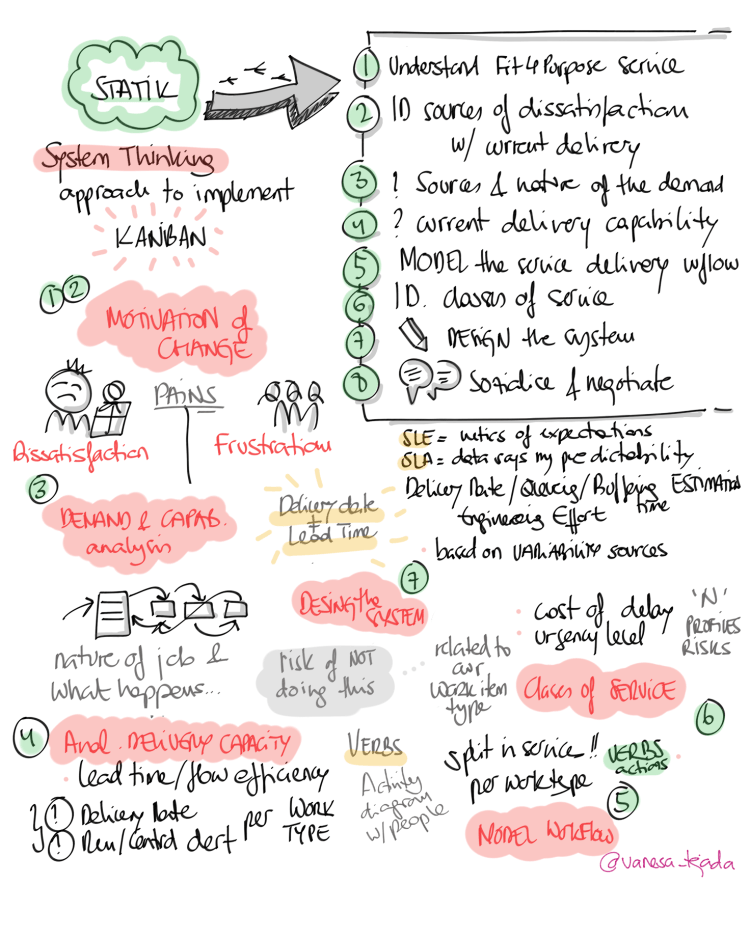 STATIK
System Thinking
approach to implement
KANBAN
1 Understand Fit4Purpose service
2 ID sources of dissatisfaction
w/ current delivery
3 ? Sources & nature of the demand
4 ? current delivery capability
5 MODEL the service delivery wflow
6 ID. classes of service
7 DESIGN the system
8 Socialise & negotiate
1 2
MOTIVATION of
CHANGE
PAINS
Dissatisfaction
Frustration
SLE = metrics of expectations
SLA = data says my predictability
Delivery Rate / Queuing / Buffering time ESTIMATION
Engineering Effort
· based on VARIABILITY sources
3
DEMAND & CAPAB.
analysis
Delivery date
+
Lead Time
nature of job &
what happens...
7
DESING the
SYSTEM
risk of NOT
doing this
... related to
our
work item
type
· cost of delay
· urgency level
'N'
PROFILES
RISKS
Classes of SERVICE
6
4
Anal. DELIVERY CAPACITY
· lead time/flow efficiency
? ! Delivery Rate
! Run/Control chart
per WORK
TYPE
VERBS
Activity
diagram
w/people
split in service!!
per worktype
VERBS
actions
5
MODEL WORKFLOW
@vanesa_tejada